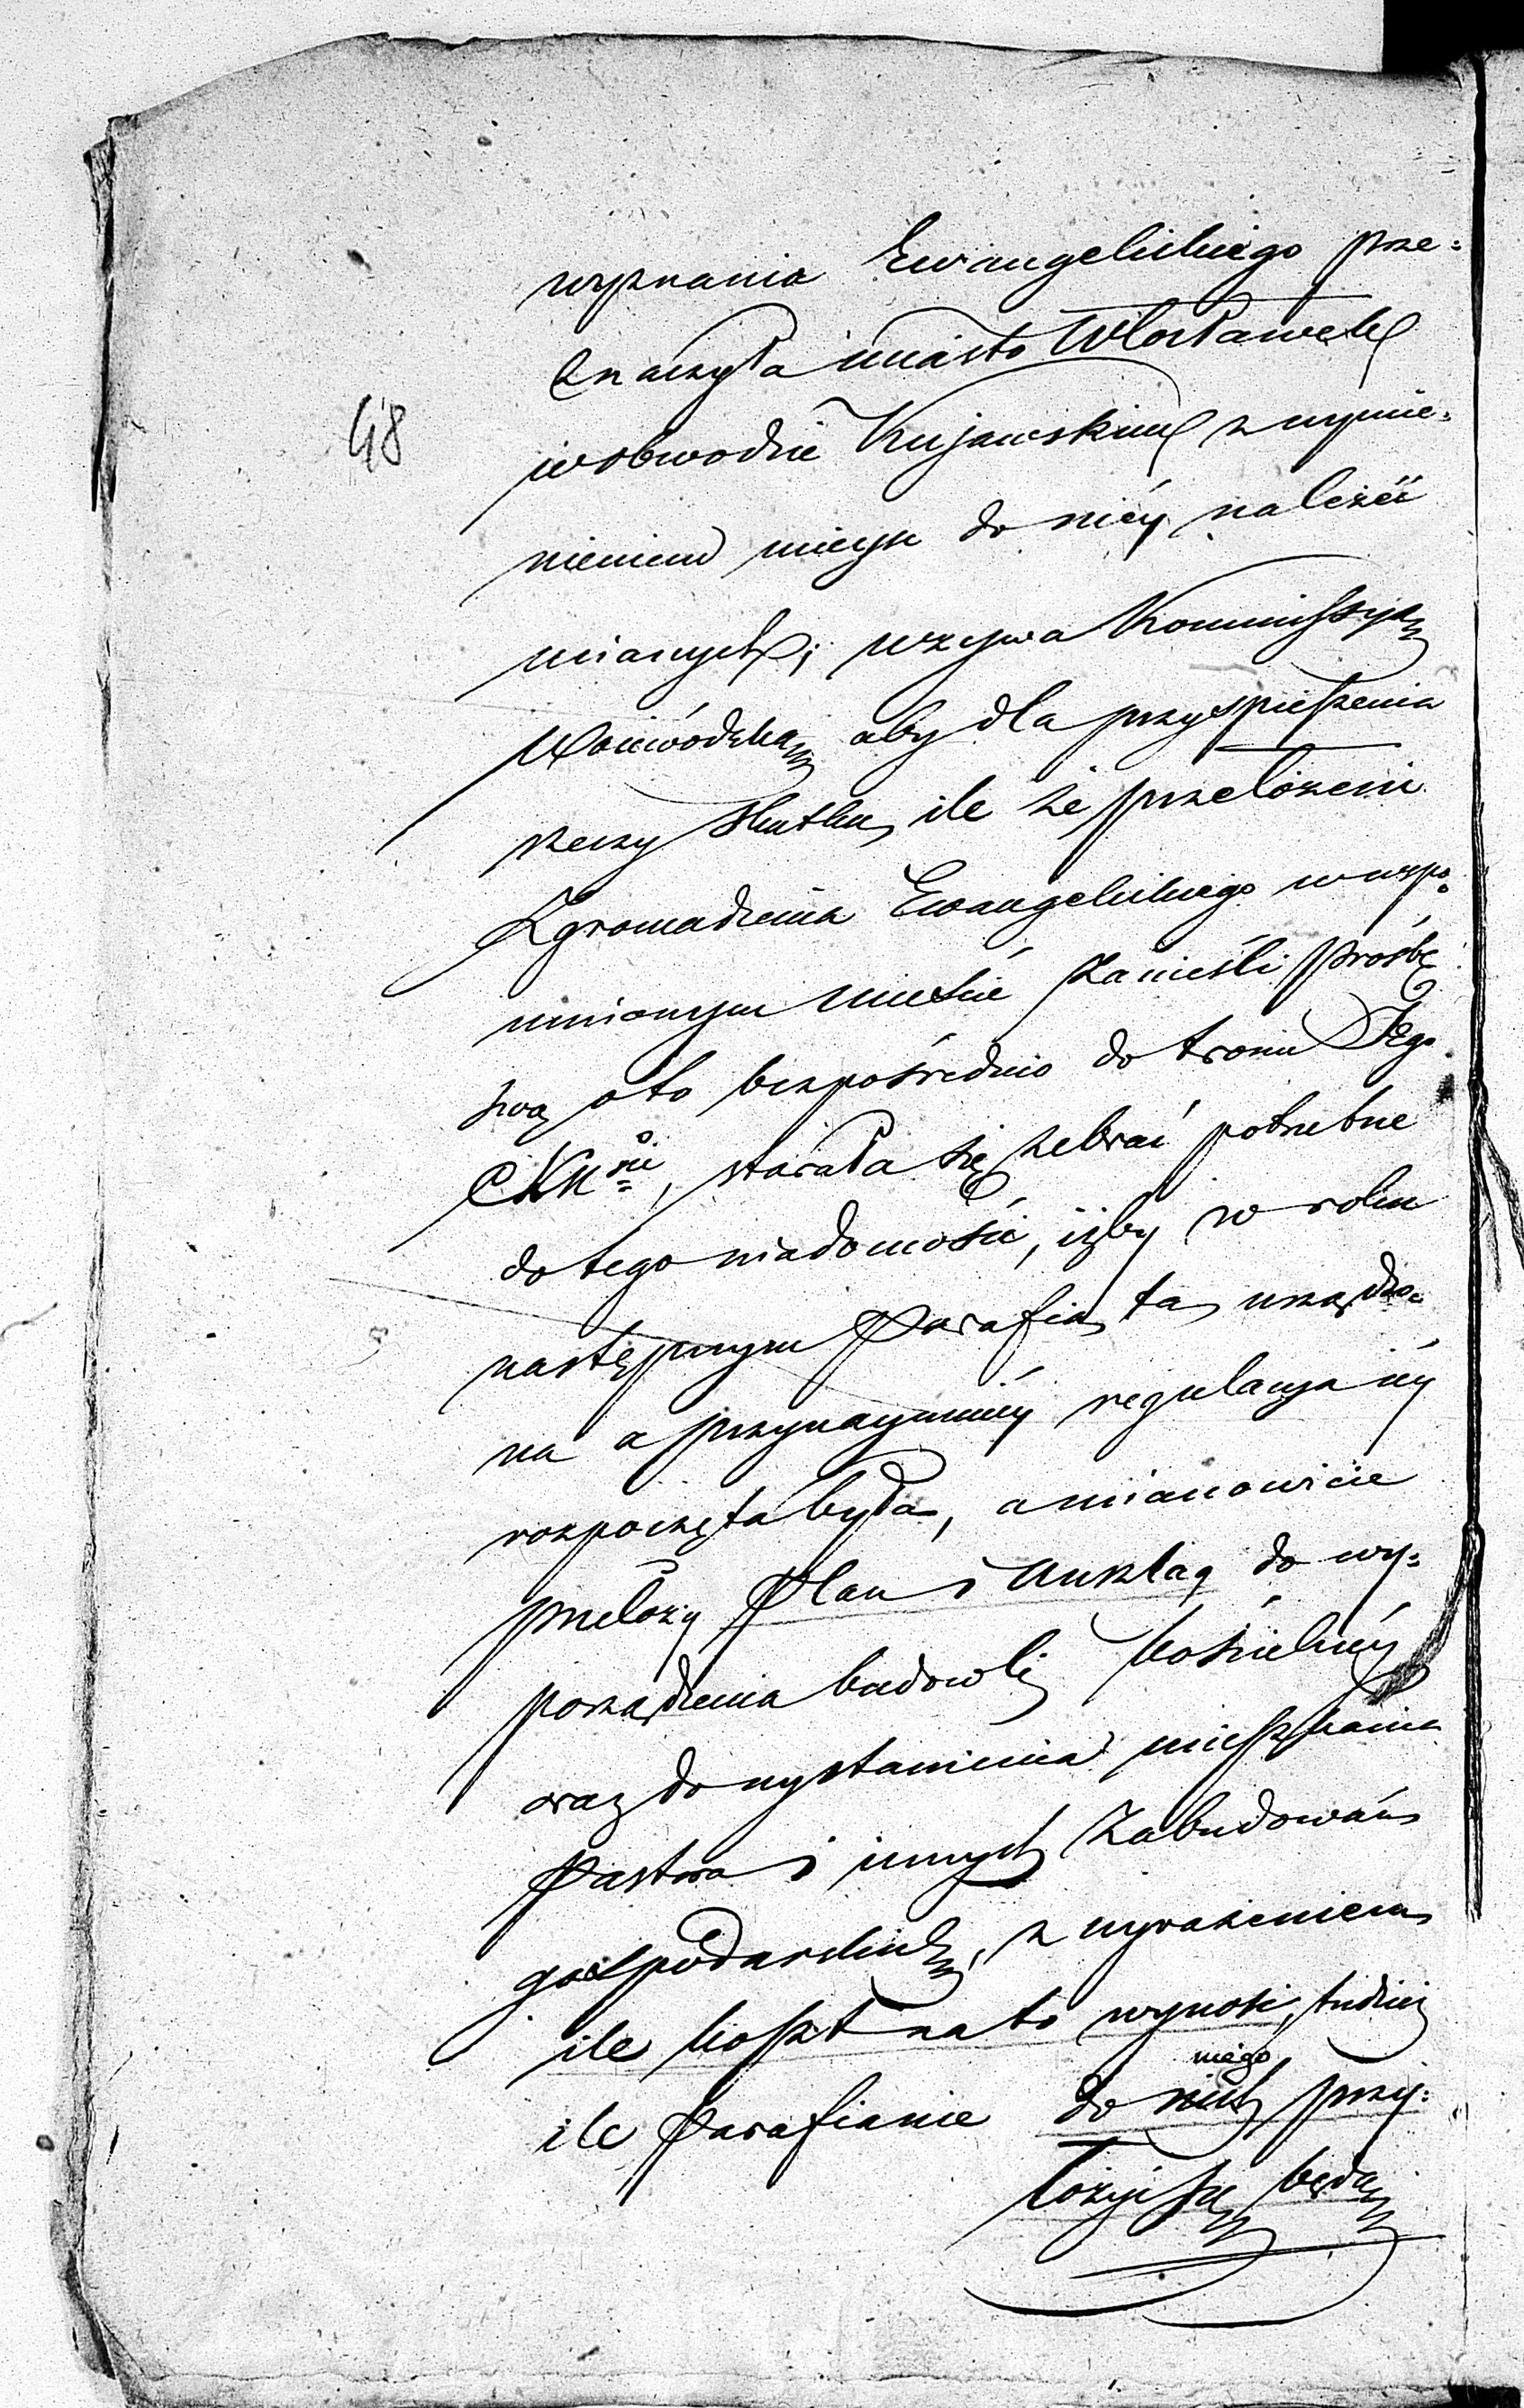 wyznania Ewangelickiego prze=
znaczyła miasto Włocławek
w obwodzie Kujawskim z wymie=
nieniem mieysc do niéy należéć
mianych; wzywa Kommissyą
Woiewódzką aby dla przyspieszenia
rzeczy skutku, ile że przełożeni
Zgromadzenia Ewangelickiego w wspo=
mnionym mieście zanieśli prośbę
swą o to bezpośrednio do tronu Jego
CKMci, starała się zebrać potrzebne
do tego wiadomości, iżby w roku
następnym Parafia ta urządzo=
na a przynaymniéy regulacya iéy
rozpoczęta była, a mianowicie
przełoży Plan i Anszlag do wy=
porządzenia budowli kościelnéy
oraz do wystawienia mieszkania
Pastora i innych zabudowań
gospodarskich, z wyrażeniem
ile koszt na to wynosi, tudzież
niego
ile Parafianie do nich przy=
łożyć się będą
48